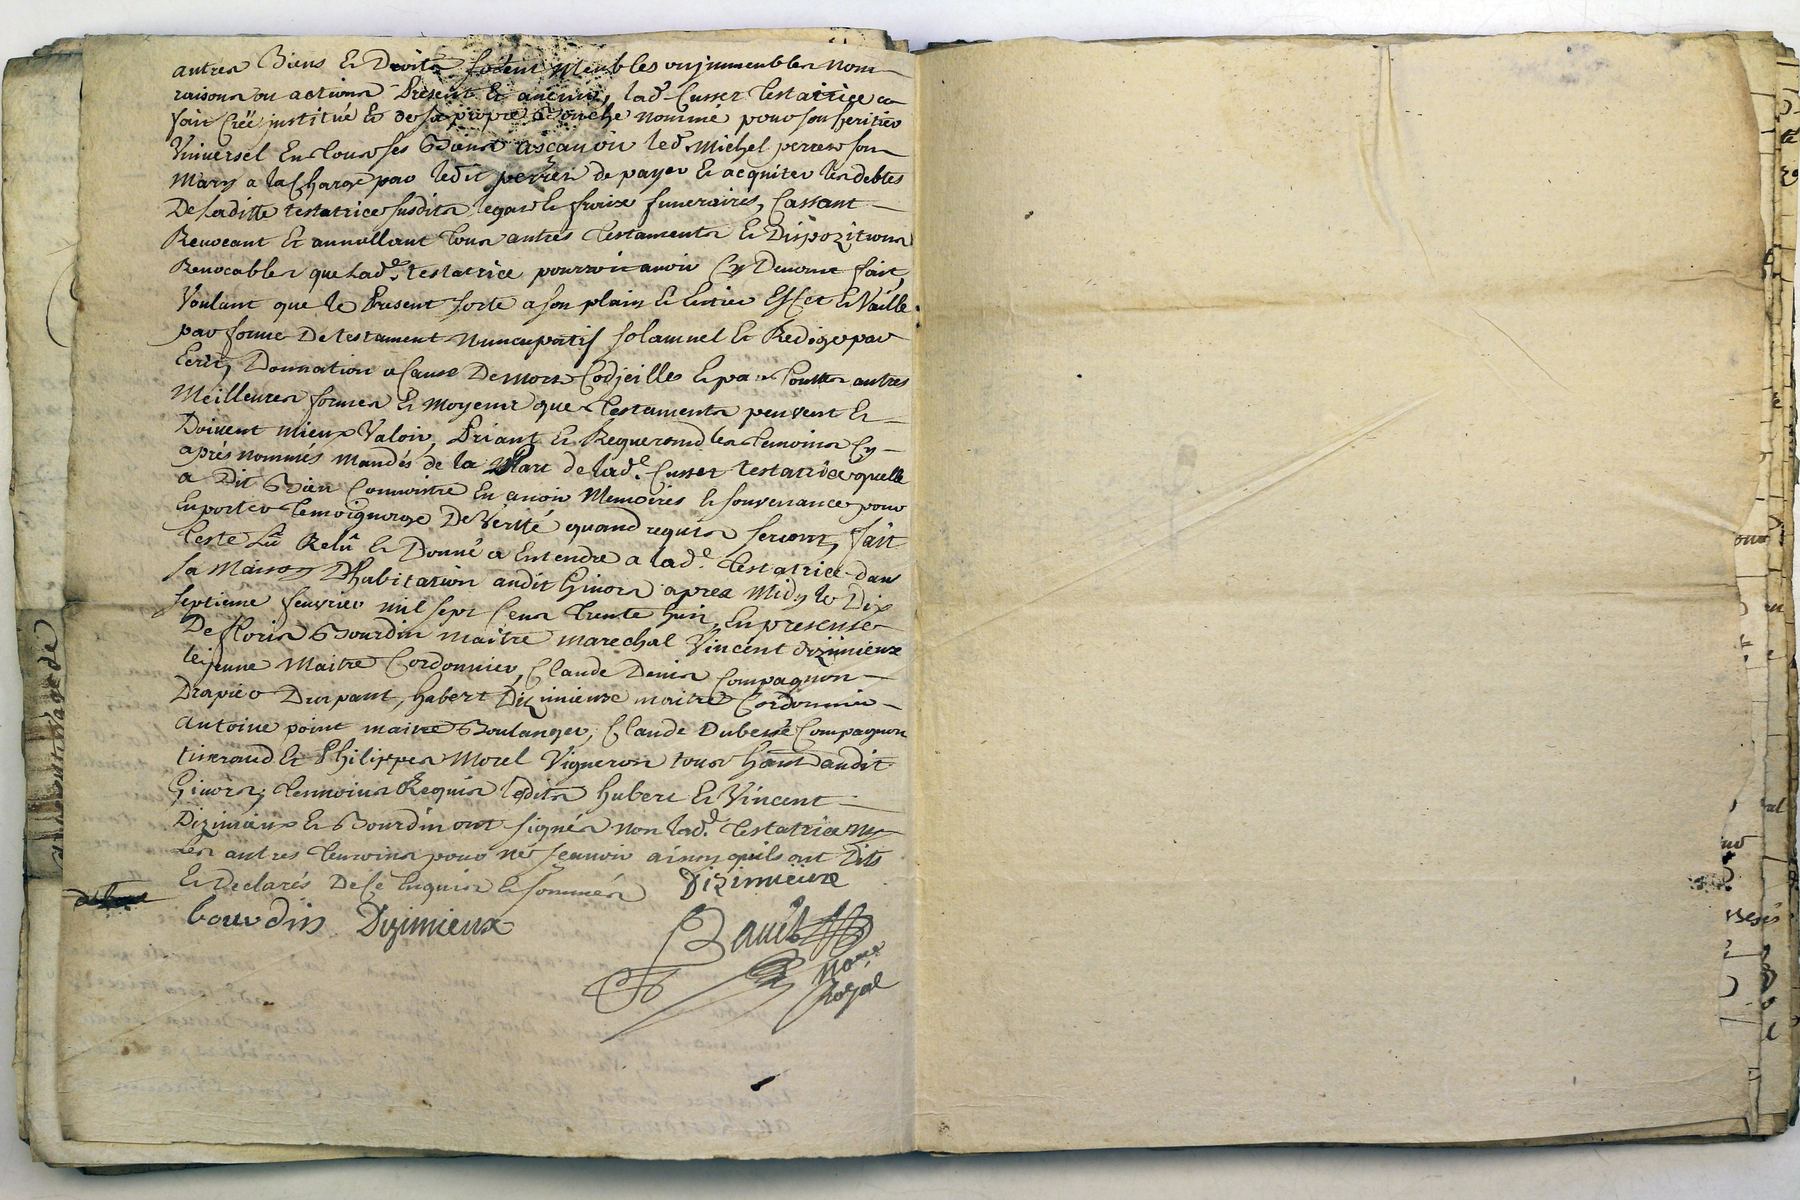 autres Biens et Droits soient Meubles ou jmmeubles nom
raisons ou actions Présent et avenir, lad. Cusset testatrice a
fait créé, institué et de sa propre Bouche nommé pour son heritier
Vniversel En tous ses Biens ascavoir led. Michel perret son
Mary a la Charge par ledit perret de payer et acquiter les debtes
De laditte testatrice susdits legats et fraix funeraires, Cassant
Revocant et annullant tous autres testaments et Dispozitions
Revocables que Lad.e testatrice pourroit avoir Cy Devant fait,
Voulant que le Present sorte a son plain et Entier Effet et Vaille
par forme De testament Nuncupatif solamnel et Redigé par
Ecrit, Donnation a Cause De mort Codjcille et par touttes autres
Meilleures formes et Moyens que testaments peuvent et
Doivent mieux Valoir, Priant et Requerand les temoins Cy
aprés nommés mandés de la Part de lad.e Cusset testatrice quelle
a Dit Bien Connoistre En avoir Memoires et souvenances pour
En porter temoignage De Vérité quand requis seront, fait
Leste Lû Relû et Donné a Entendre a lad.e testatrice dans
sa Maison D'habitation audit Givors apres Midy le Dix
septieme fevrier mil sept Cent trente huit, En presence
De floris Bourdin maitre marechal Vincent dizimieux
lejeune Maitre Cordonnier, Claude Denis Compagnon
Drapier Drapant, hubert Dizimieux maitre Cordonnier
antoine point maitre Boulanger, Claude Dubessé Compagnon
tisserand et Philippes Morel Vigneron tous habt audit
Givors; temoins Requis lesdits hubert et Vincent
Dizimieux et Bourdin ont signés non lad.e testatrice ny
Les autres temoins pour ne sçavoir ainsy quils ont Dits
et Declarés De ce Enquis et sommés Dizimieux
bourdin Dizimieux
Royal